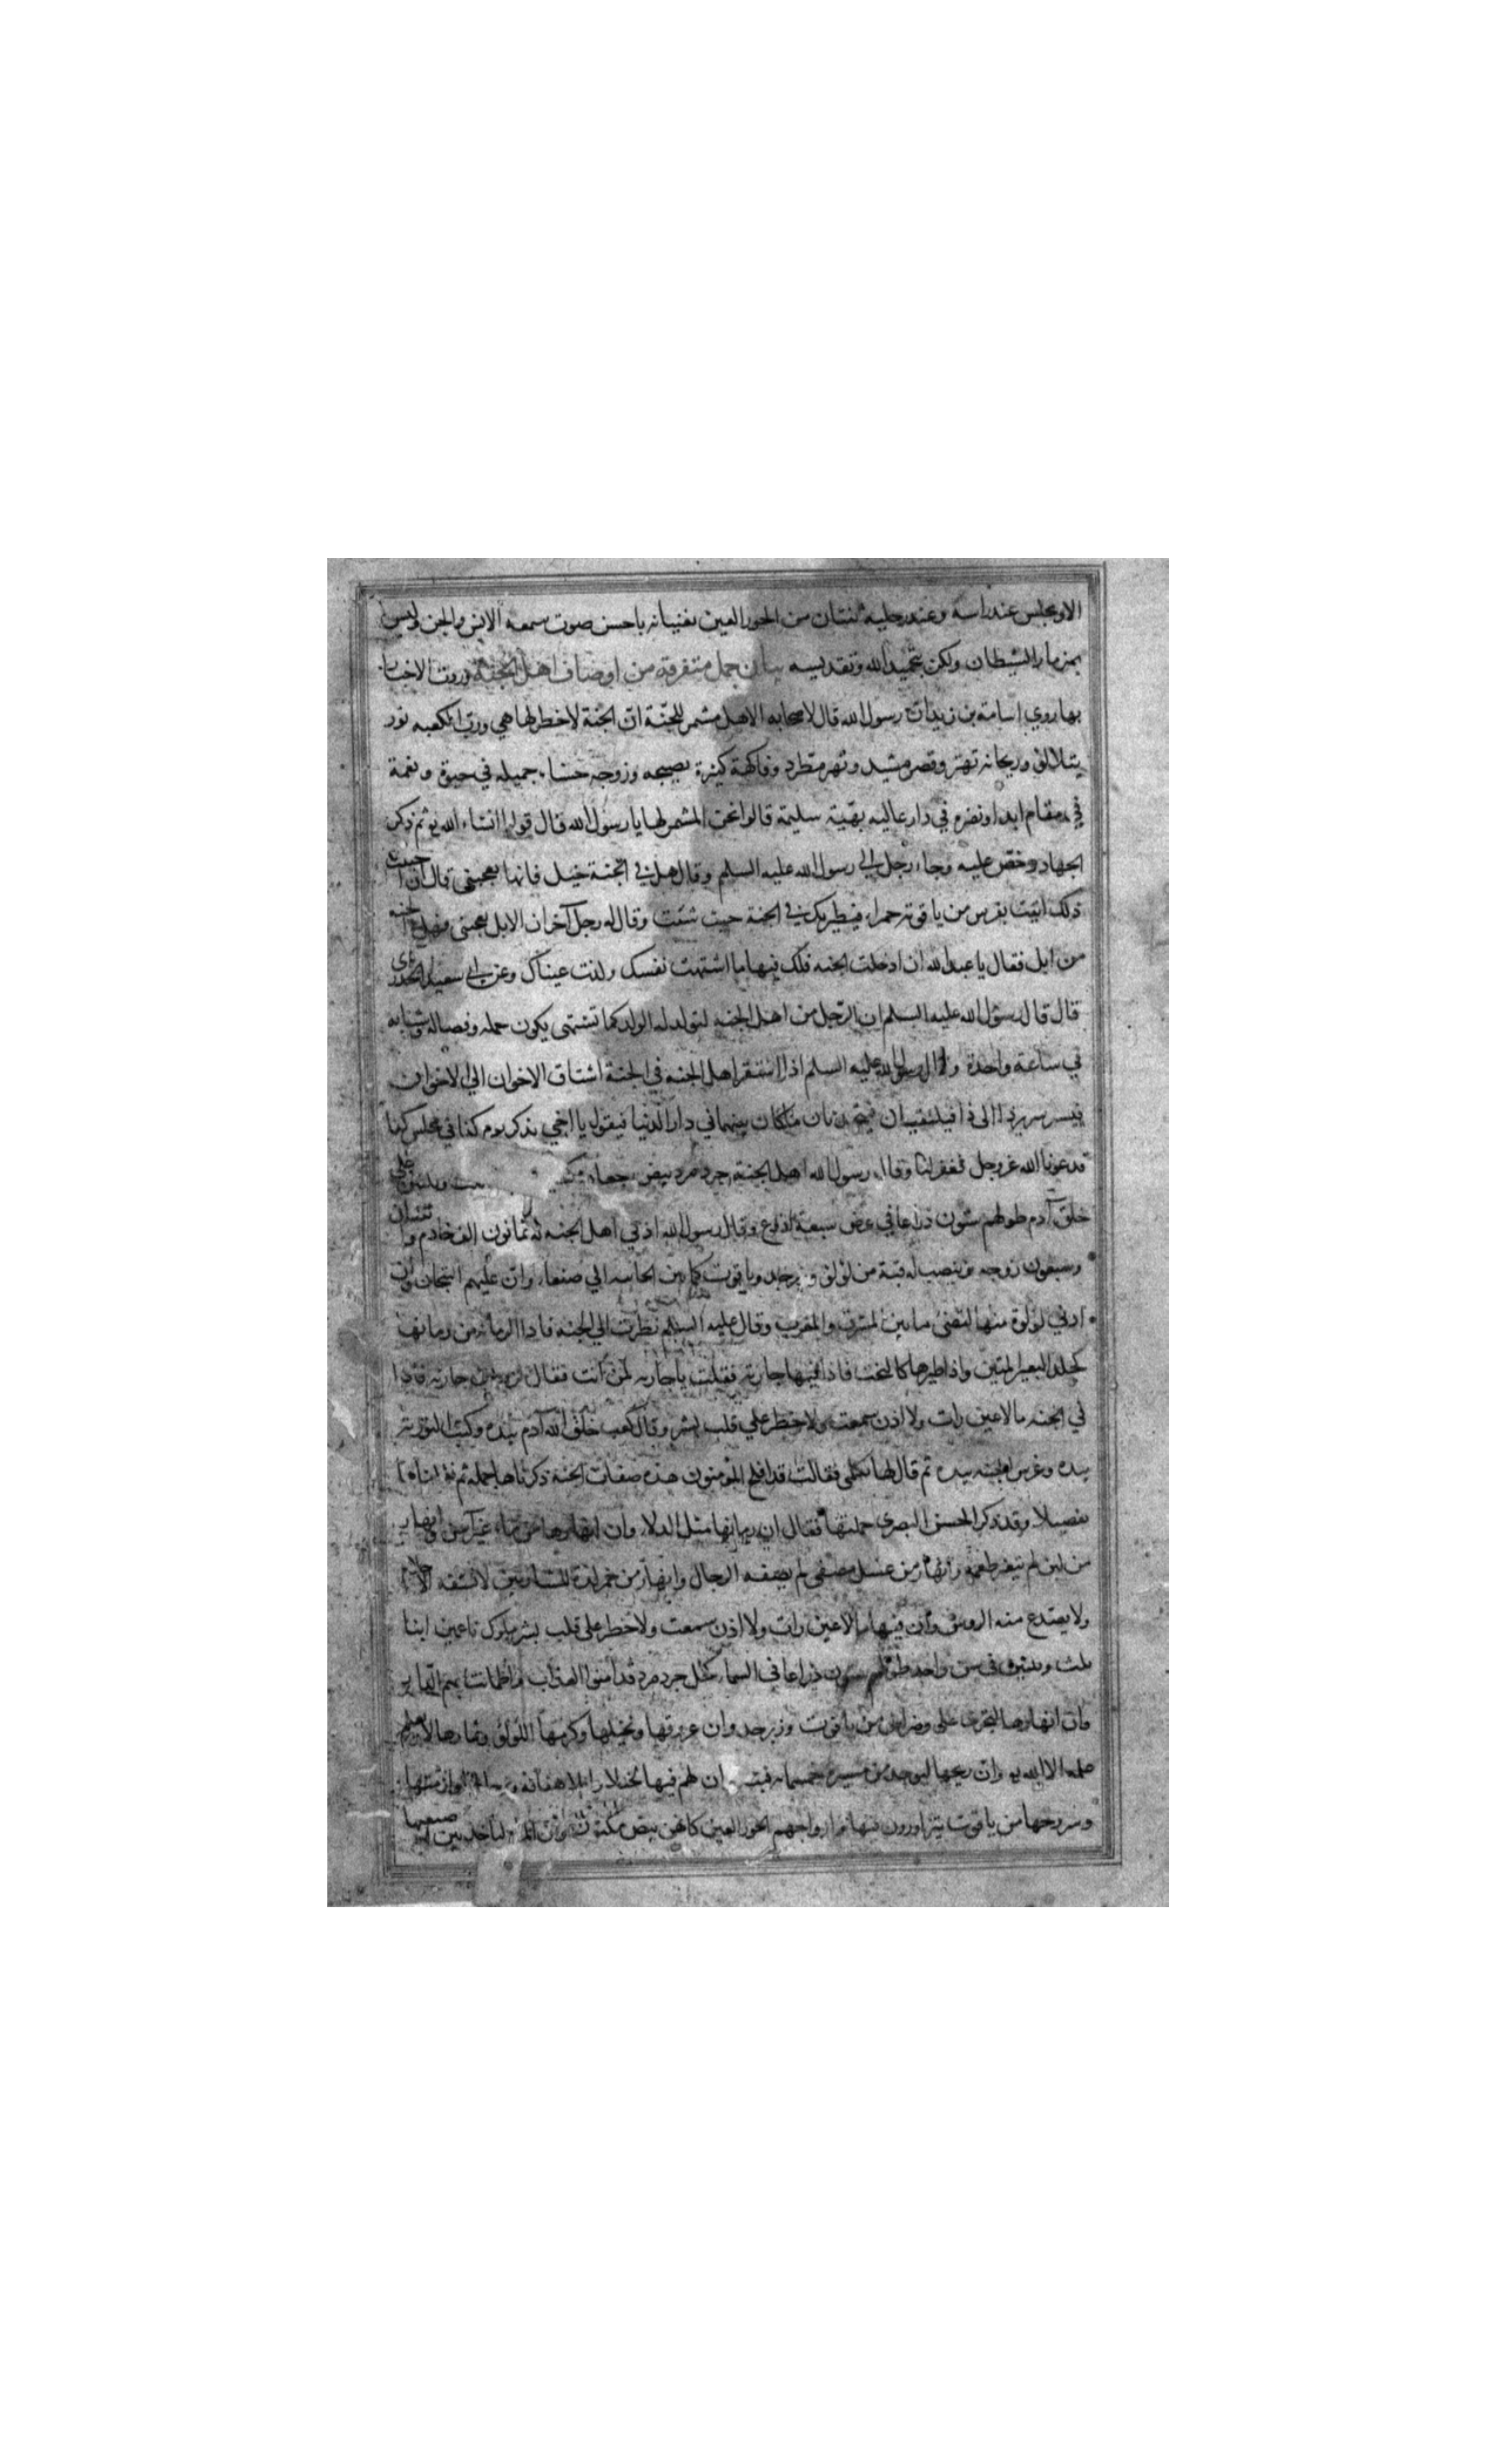 الا ويجلس عند راسه وعند رجليه ثنتان من الحور العين تغنيانه باحسن صوت سمعه الانس والجن وليس
بمزمار الشيطان ولكن بتحميد الله وتقديسه بيان جمل متفرقة من اوصاف اهل الجنة وردت الاخبار
بها روي اسامة بن زيد ان رسول الله قال لاصحابه الا هل مشمر للجنة ان الجنة لا خطر لها هي ورب الكعبه نور
يتلالؤ وريحانه تهتز وقصر مشيد ونهر مطرد وفاكهة كثيرة نضيجه وزوجه حسناء جميله في حبرة ونعمة
في مقام ابدا ونضرة في دار عاليه بهية سليمة قالوا نحن المشمرون لها يا رسول الله قال قولوا انشاء الله ثم ذكر
الجهاد وحض عليه وجاء رجل الي رسول الله عليه السلم وقال هل في الجنة خيل فانها تعجبني قال ان احببت
ذلك اتيت بفرس من ياقوته حمراء فيطير بك في الجنة حيث شئت وقال له رجل آخر ان الابل تعجبني فهل في الجنه
من ابل فقال يا عبد الله ان ادخلت الجنه فلك فيها ما اشتهت نفسك ولذت عيناك وعن ابي سعيد الخدري
قال قال رسول الله عليه السلم ان الرجل من اهل الجنه ليولد له الولد كما تشتهي يكون حمله وفصاله وشبابه
في ساعة واحدة وقال رسول الله عليه السلم اذا استقر اهل الجنه في الجنة اشتاق الاخوان الي الاخوان
فيسر سرير ذا الي ذا فيلتقيان فيتحدثان ما كان بينهما في دار الدنيا فيقول يا اخي تذكر يوم كذا في مجلس كذا
قد دعونا الله عز وجل فغفر لنا وقال رسول الله اهل الجنة جرد مرد بيض جعاد وثلثين علي
خلق آدم طولهم ستون ذراعا في عرض سبعة اذرع وقال رسول الله ادني اهل الجنه له ثمانون الف خادم وثنتان
وسبعون زوجه وينصب له قبة من لؤلؤ وزبرجد وياقوت كما بين الجابيه الي صنعاء وان عليهم التيجان وان
ادني لؤلؤة منها لتضئ ما بين المشرق والمغرب وقال عليه السلم نظرت الي الجنه فاذا الرمانه من رمانها
كجلد البعير المقتب واذا طيرها كالبخت فاذا فيها جاريه فقلت يا جاريه لمن انت فقالت لزيد بن حارثه فاذا
في الجنه ما لا عين رات ولا اذن سمعت ولا خطر علي قلب بشر وقال كعب خلق الله آدم بيده وكتب التورية
بيده وغرس الجنه بيده ثم قال لها تكلمي فقالت قد افلح المؤمنون هذه صفات الجنة ذكرناها جملة ثم نقلناها
تفصيلا وقد ذكر الحسن البصري جملتها فقال ان رمانها مثل الدلاء وان انهارها من ماء غير آسن وانهار
من لبن لم يتغير طعمه وانهار من عسل مصفي لم يصفه الرجال وانهار من خمر لذة للشاربين لا تسفه الاحلام
ولا يصدع منه الروس وان فيها ما لا عين رات ولا اذن سمعت ولا خطر علي قلب بشر ملوك ناعمين ابنا
ثلث وثلثين في سن واحد طولهم ستون ذراعا في السماء كحل جرد مرد قد امنوا العذاب واطمانت بهم الدار
وان انهارها لتجري علي رضراض من ياقوت وزبرجد وان عروقها ونخيلها وكرمها اللؤلؤ وثمارها لا يعلم
علمه الا الله وان ريحها ليوجد من مسيرة خمسمايه سنه وان لهم فيها خيلا وابلا هفافه رحالها وازمتها
وسروجها من ياقوت يتزاورون فيها وازواجهم الحور العين كانهن بيض مكنون وان المراة لتاخذ بين اصبعيها